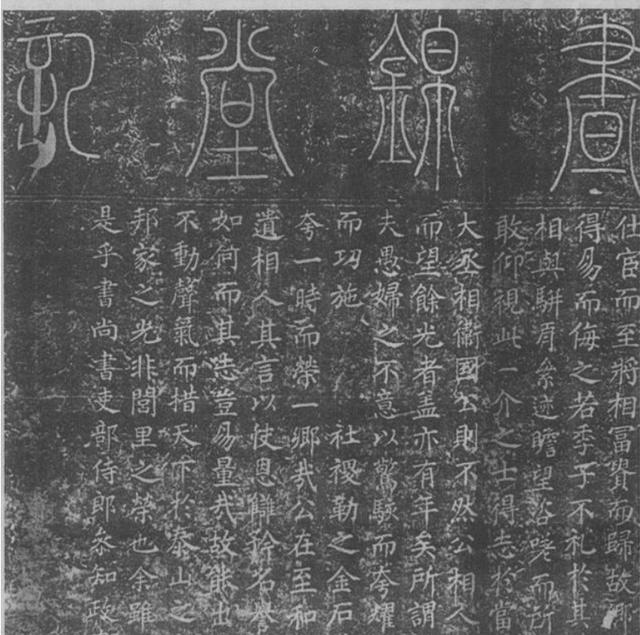 晝錦堂記
仕宦而至將相富貴而歸故鄉
得易而侮之若季子不礼於其
相與駢肩絫迹瞻望咨嗟而所
敢仰視此一介之士得志於當
大丞相衛國公則不然公相人
而望餘光者盖亦有年矣所謂
夫愚婦之不意以驚駭而夸耀
而功施 社稷勒之金石
夸一時而榮一鄉哉公在至和
遺相人其言以快恩讎矜名譽
如何而其志豈易量哉故能出
不動聲氣而措天下於泰山之
邦家之光非閭里之榮也余雖
是乎書尚書吏部侍郎叅知政